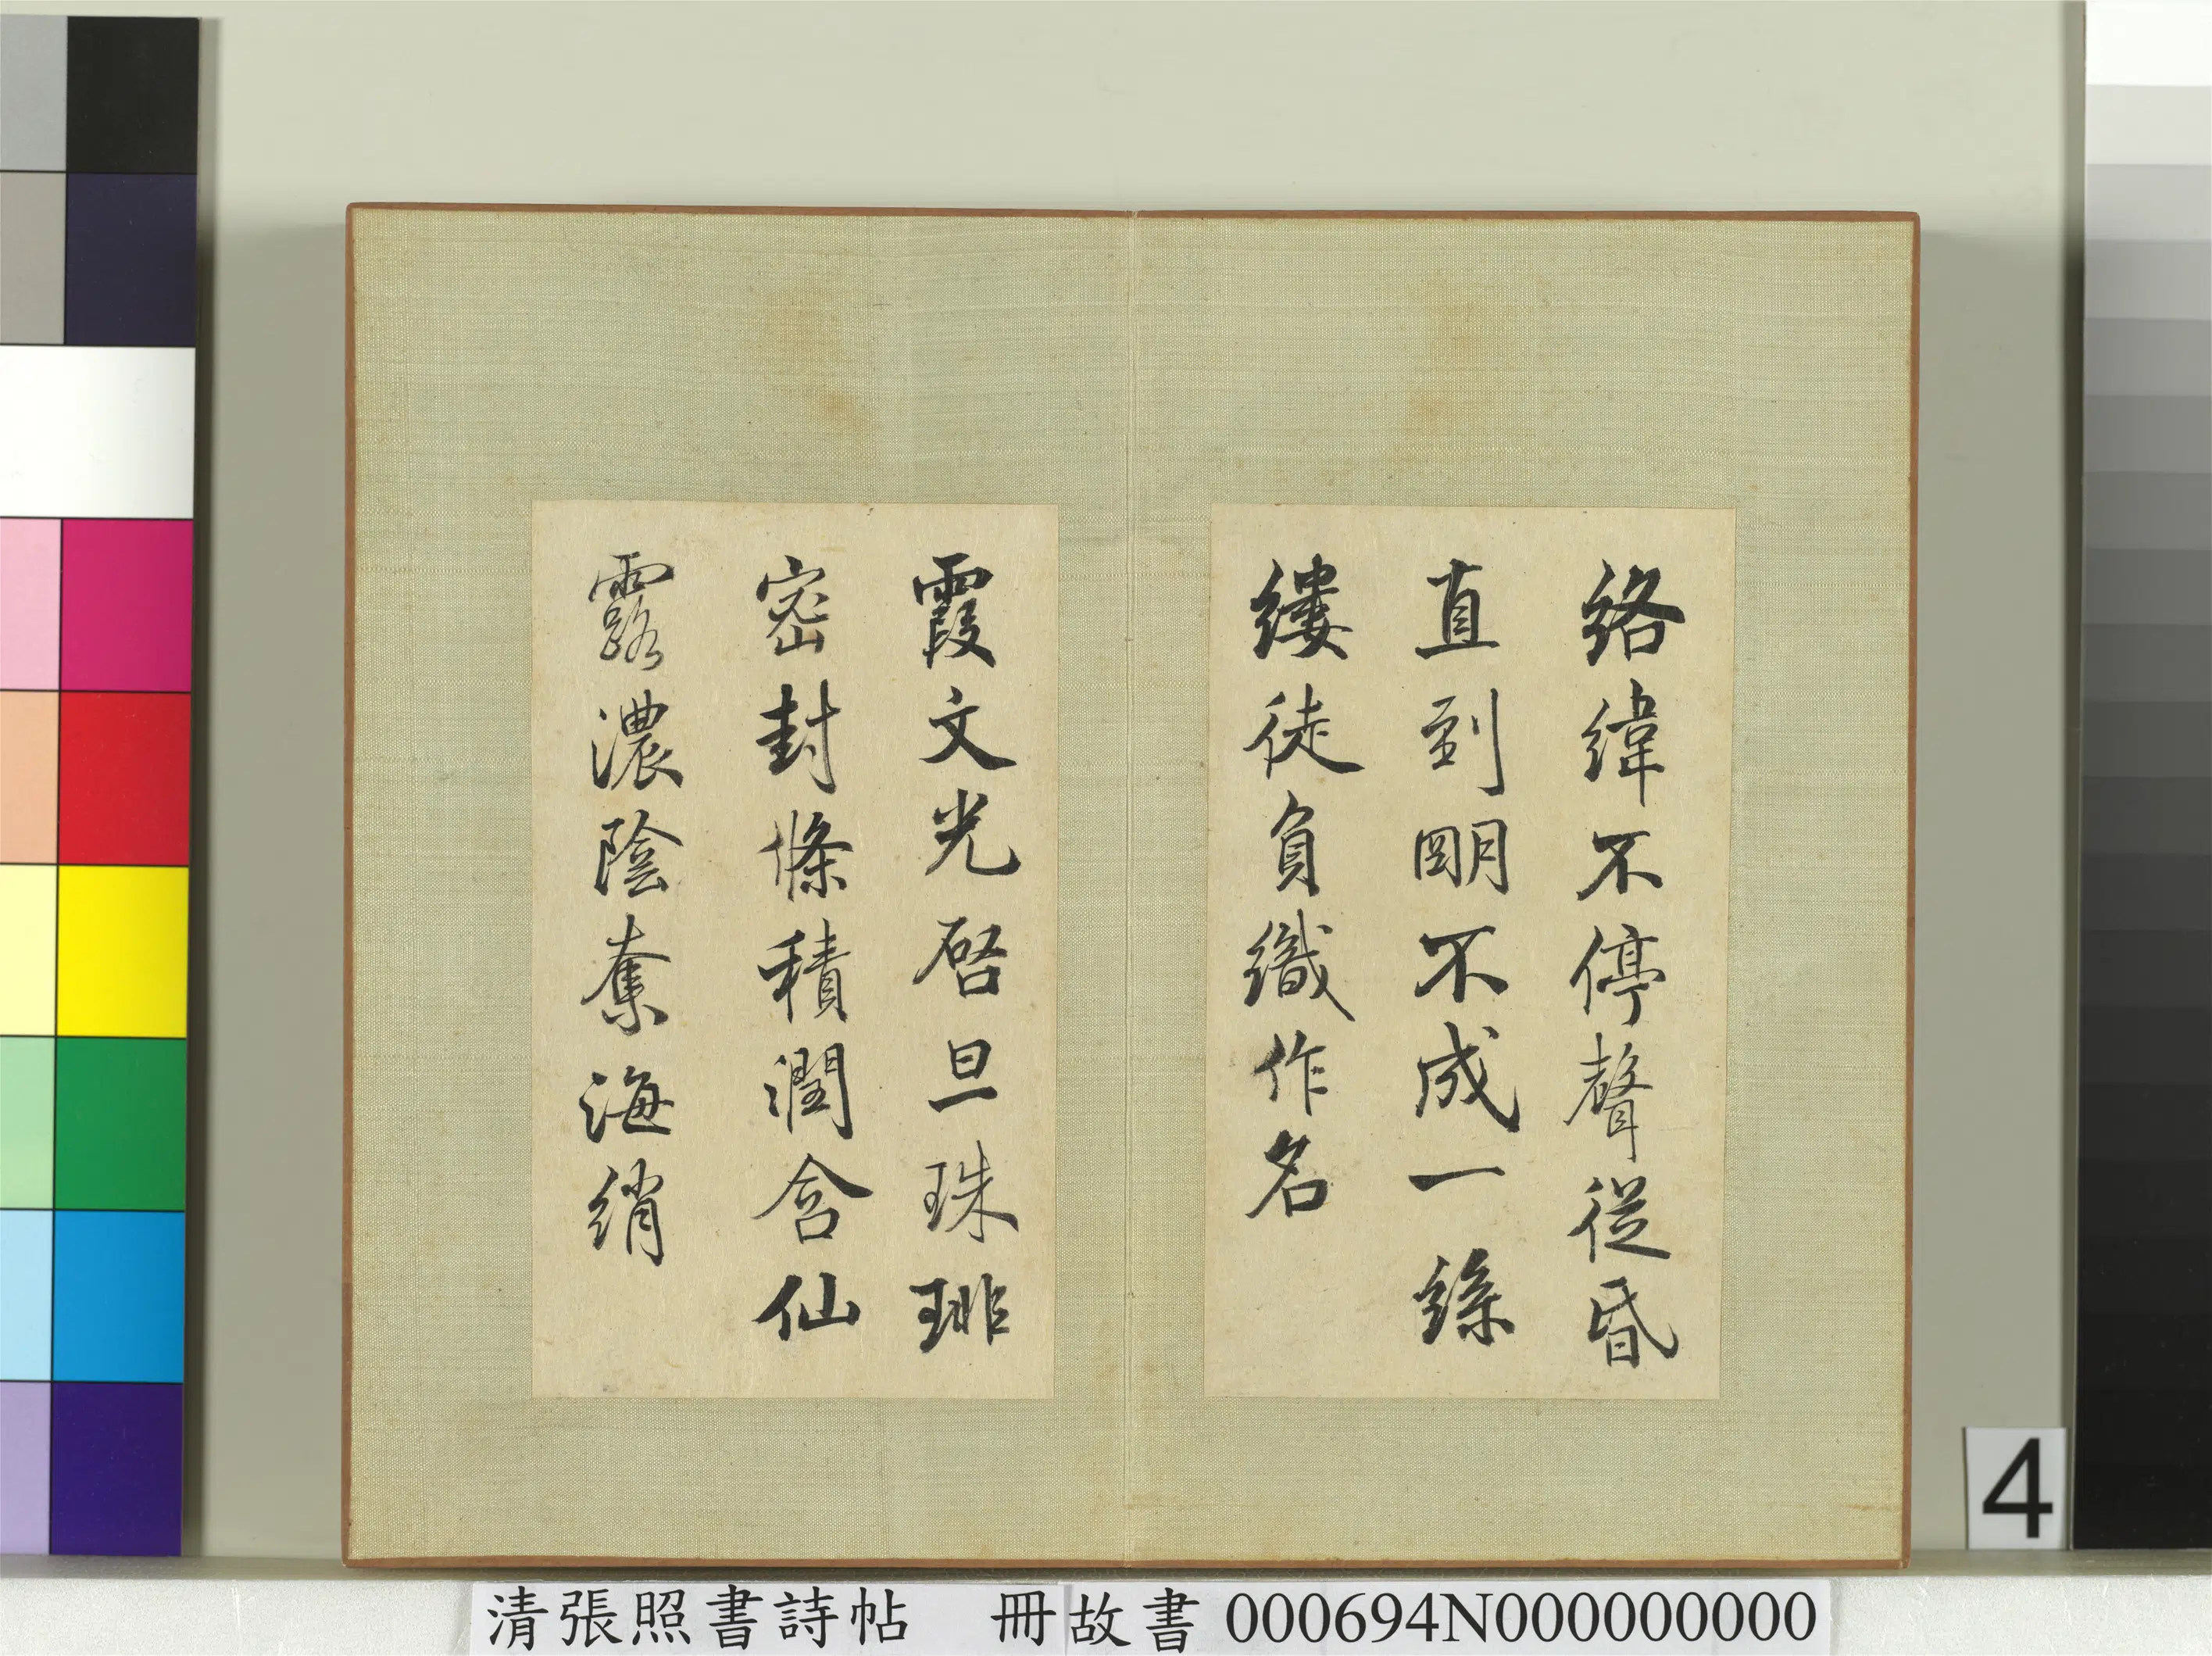 絡緯不停聲從昏
直到明不成一絲
縷徒負織作名
霞文光啓旦珠琲
密封條積潤含仙
露濃陰奪海綃
4
清張照書詩帖 冊故書 000694N000000000